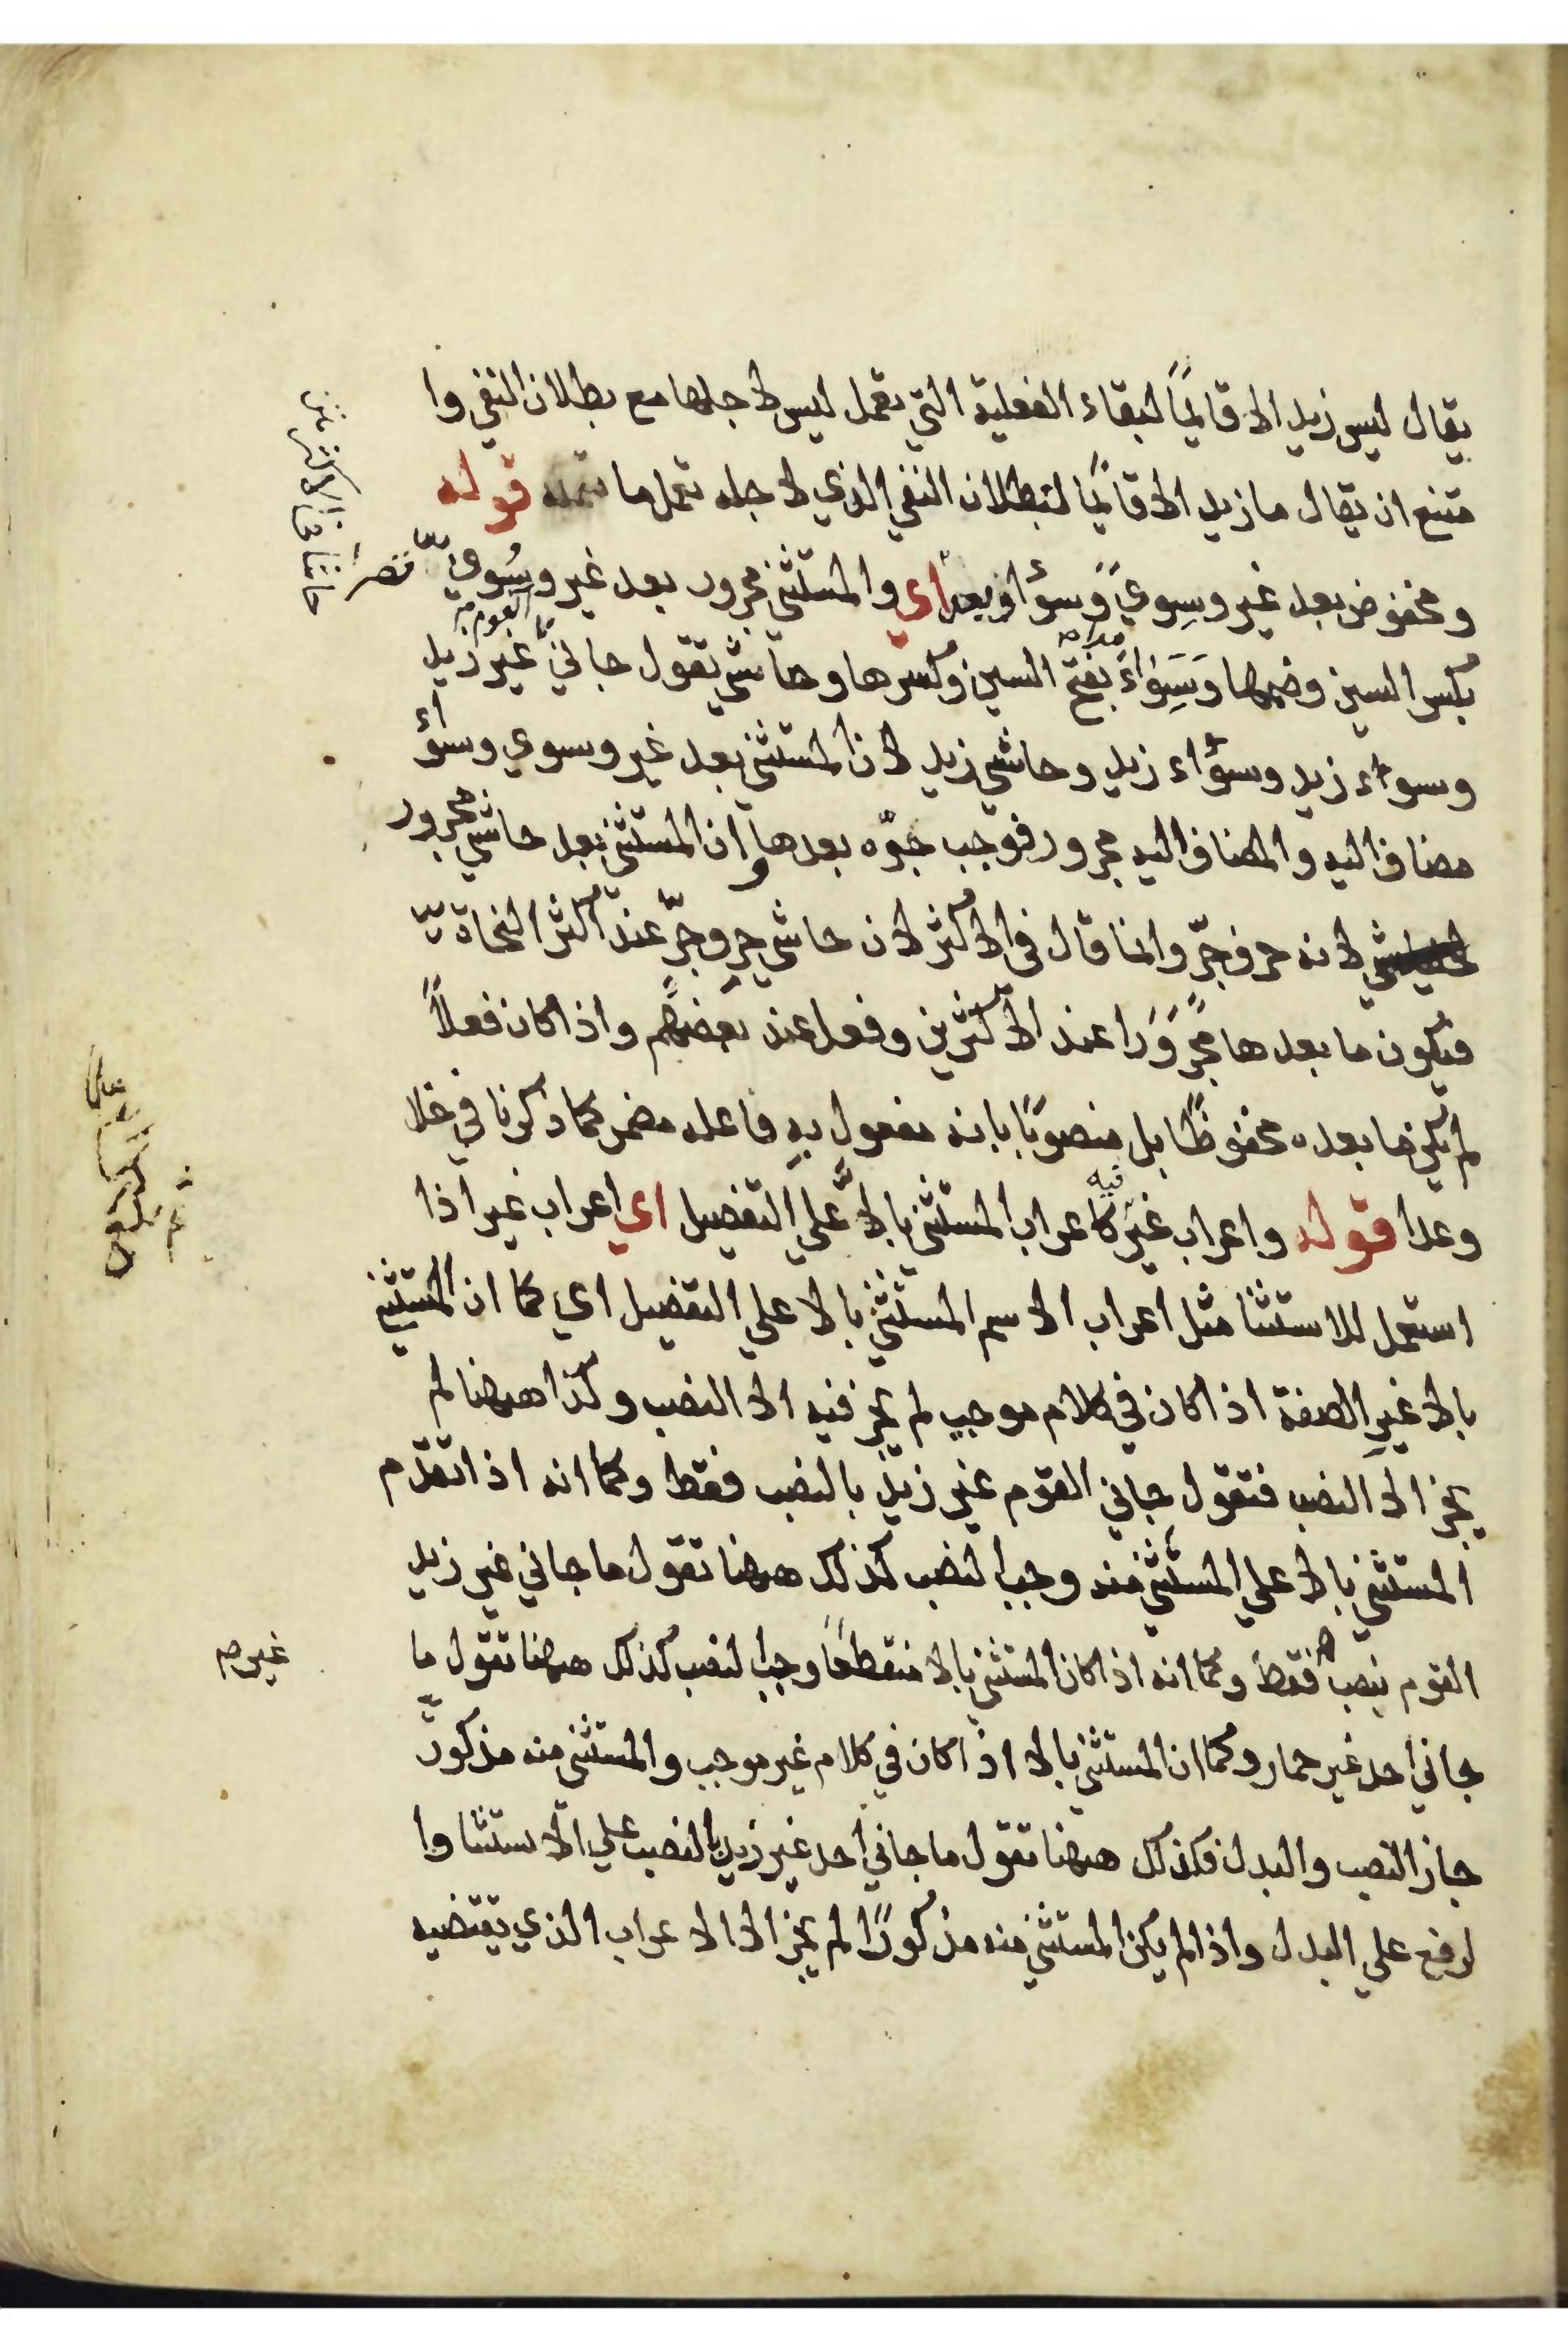 يقال ليس زيد الا قائمًا لبقاء الفعلية التي يعمل ليس لاجلها مع بطلان النفي وا
متنع ان يقال ما زيد الا قائمًا لبطلان النفي الذي لاجله تعمل ما قوله
ومخفوض بعد غير وسِوي وسواء وبعد اي والمستثني مجرور بعد غير وسُوي
بكسر السين وضمها وسَِوَاءَ بفتح السين وكسرها وحاشي تقول جاني القوم غير زيد
وسواء زيد وسواء زيد وحاشي زيد لان المستثني بعد غير وسوي وسواء
مضاف اليه والمضاف اليه مجرور فوجب جرّه بعدها وان المستثني بعد حاشي مجرور
لانه حرف جرّ وانما قال في الاكثر لان حاشي حرف جرّ عند اكثر النحاة
فيكون ما بعدها مجرورا عند الاكثرين وفعل عند بعضهم واذا كان فعلاً
لم يكن ما بعده مخفوظًا بل منصوبًا بانه مفعول به فاعله مضمر كما ذكرنا في خلا
وعدا قوله واعراب غير فيه كاعراب المستثني بالا علي التفضيل اي اعراب غير اذا
استعمل للاستثنا مثل اعراب الاسم المستثني بالا علي التفضيل اي كما ان المستثني
بالا غير الصفة اذا كان في كلام موجب لم يجز فيه الا النصب وكذا ههنا لم
يجز الا النصب فتقول جاني القوم غير زيد بالنصب فقط وكما انه اذا تقدم
المستثني بالا علي المستثني منه وجب النصب كذلك ههنا تقول ما جاني غير زيد
القوم بنصب فقط وكما انه اذا كان المستثني بالا منقطعًا وجب النصب كذلك ههنا تقول ما
غير صح
جاني احد غير حمار وكما ان المستثني بالا اذا كان في كلام غير موجب والمستثني منه مذكور
جاز النصب والبدل فكذلك ههنا تقول ما جاني احد غير زيد بالنصب علي الاستثنا وا
لرفع علي البدل واذا لم يكن المستثني منه مذكورًا لم يجز الا الاعراب الذي يقتضيه